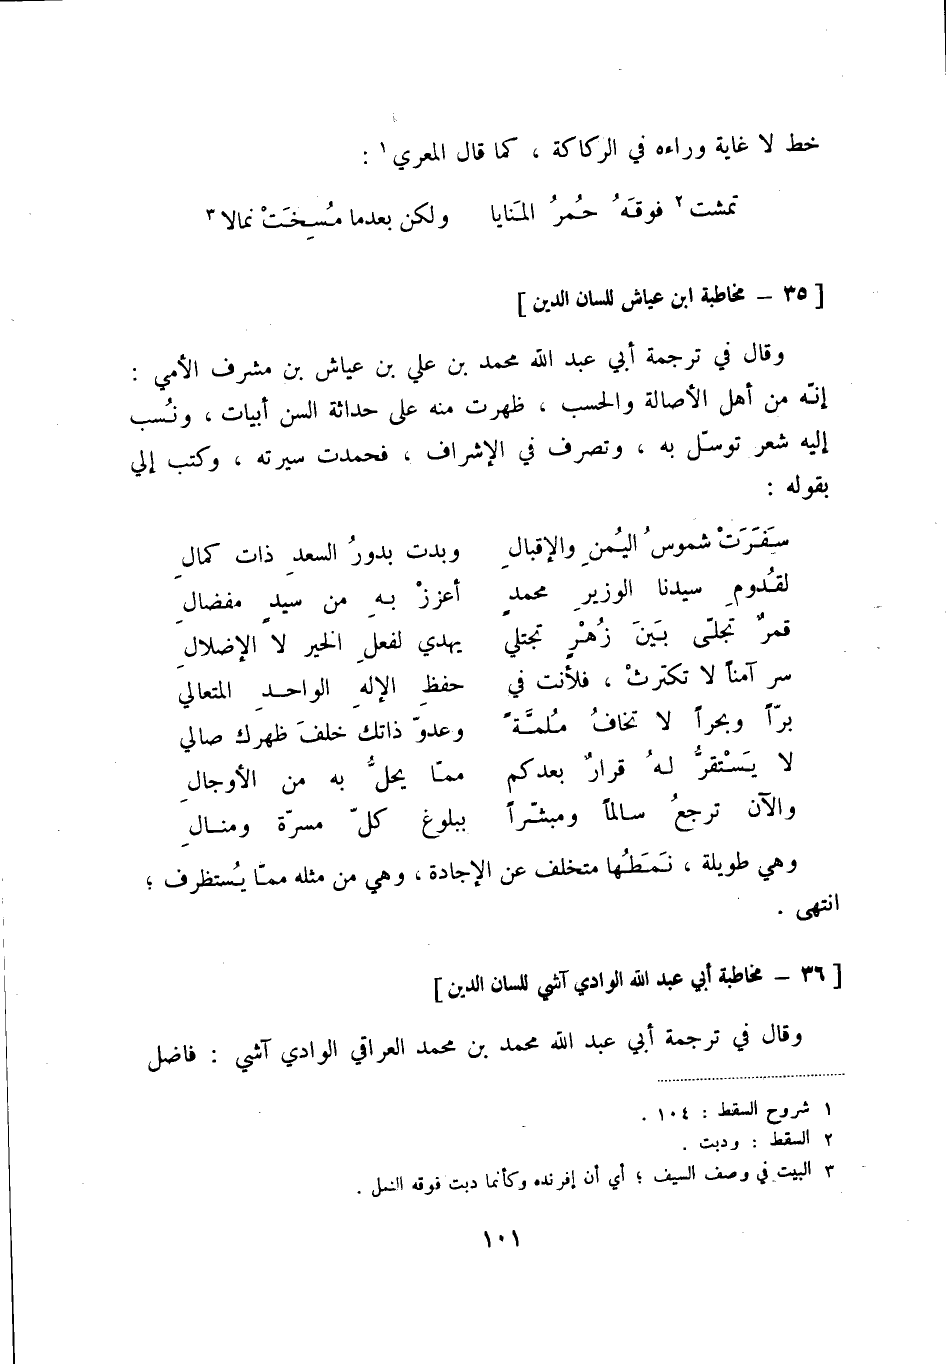 خط لا غاية وراءه في الركاكة ، كما قال المعري ١ :
تمشت ٢ فوقَهُ حُمرُ المَنايا ولكن بعدما مُسِخَتْ نمالا ٣
[ ٣٥ – مخاطبة ابن عياش للسان الدين ]
وقال في ترجمة أبي عبد الله محمد بن علي بن عياش بن مشرف الأمي :
إنّه من أهل الأصالة والحسب ، ظهرت منه على حداثة السن أبيات ، ونُسب
إليه شعر توسّل به ، وتصرف في الإشراف ، فحمدت سيرته ، وكتب إلي
بقوله :
سَفَرَتْ شموسُ اليُمنِ والإقبالِ وبدت بدورُ السعدِ ذات كمالِ
لقُدومِ سيدنا الوزيرِ محمدٍ أعززْ بهِ من سيدٍ مفضالِ
قمرٌ تجلّى بَينَ زُهْرٍ تجتلي يهدي لفعلِ الخير لا الإضلالِ
سر آمناً لا تكترثْ ، فلأنت في حفظِ الإلهِ الواحدِ المتعالي
برّاً وبحراً لا تخافُ مُلمَّةً وعدوّ ذاتك خلفَ ظهرك صالي
لا يَسْتقرُّ لهُ قرارٌ بعدكم ممّا يحلُّ به من الأوجالِ
والآن ترجعُ سالماً ومبشّراً ببلوغ كلّ مسرّة ومنالِ
وهي طويلة ، نَمَطُها متخلف عن الإجادة ، وهي من مثله ممّا يُستظرف ؛
انتهى .
[ ٣٦ – مخاطبة أبي عبد الله الوادي آشي للسان الدين ]
وقال في ترجمة أبي عبد الله محمد بن محمد العراقي الوادي آشي : فاضل
١ شروح السقط : ١٠٤ .
٢ السقط : ودبت .
٣ البيت في وصف السيف ؛ أي أن إفرنده وكأنما دبت فوقه النمل .
١٠١